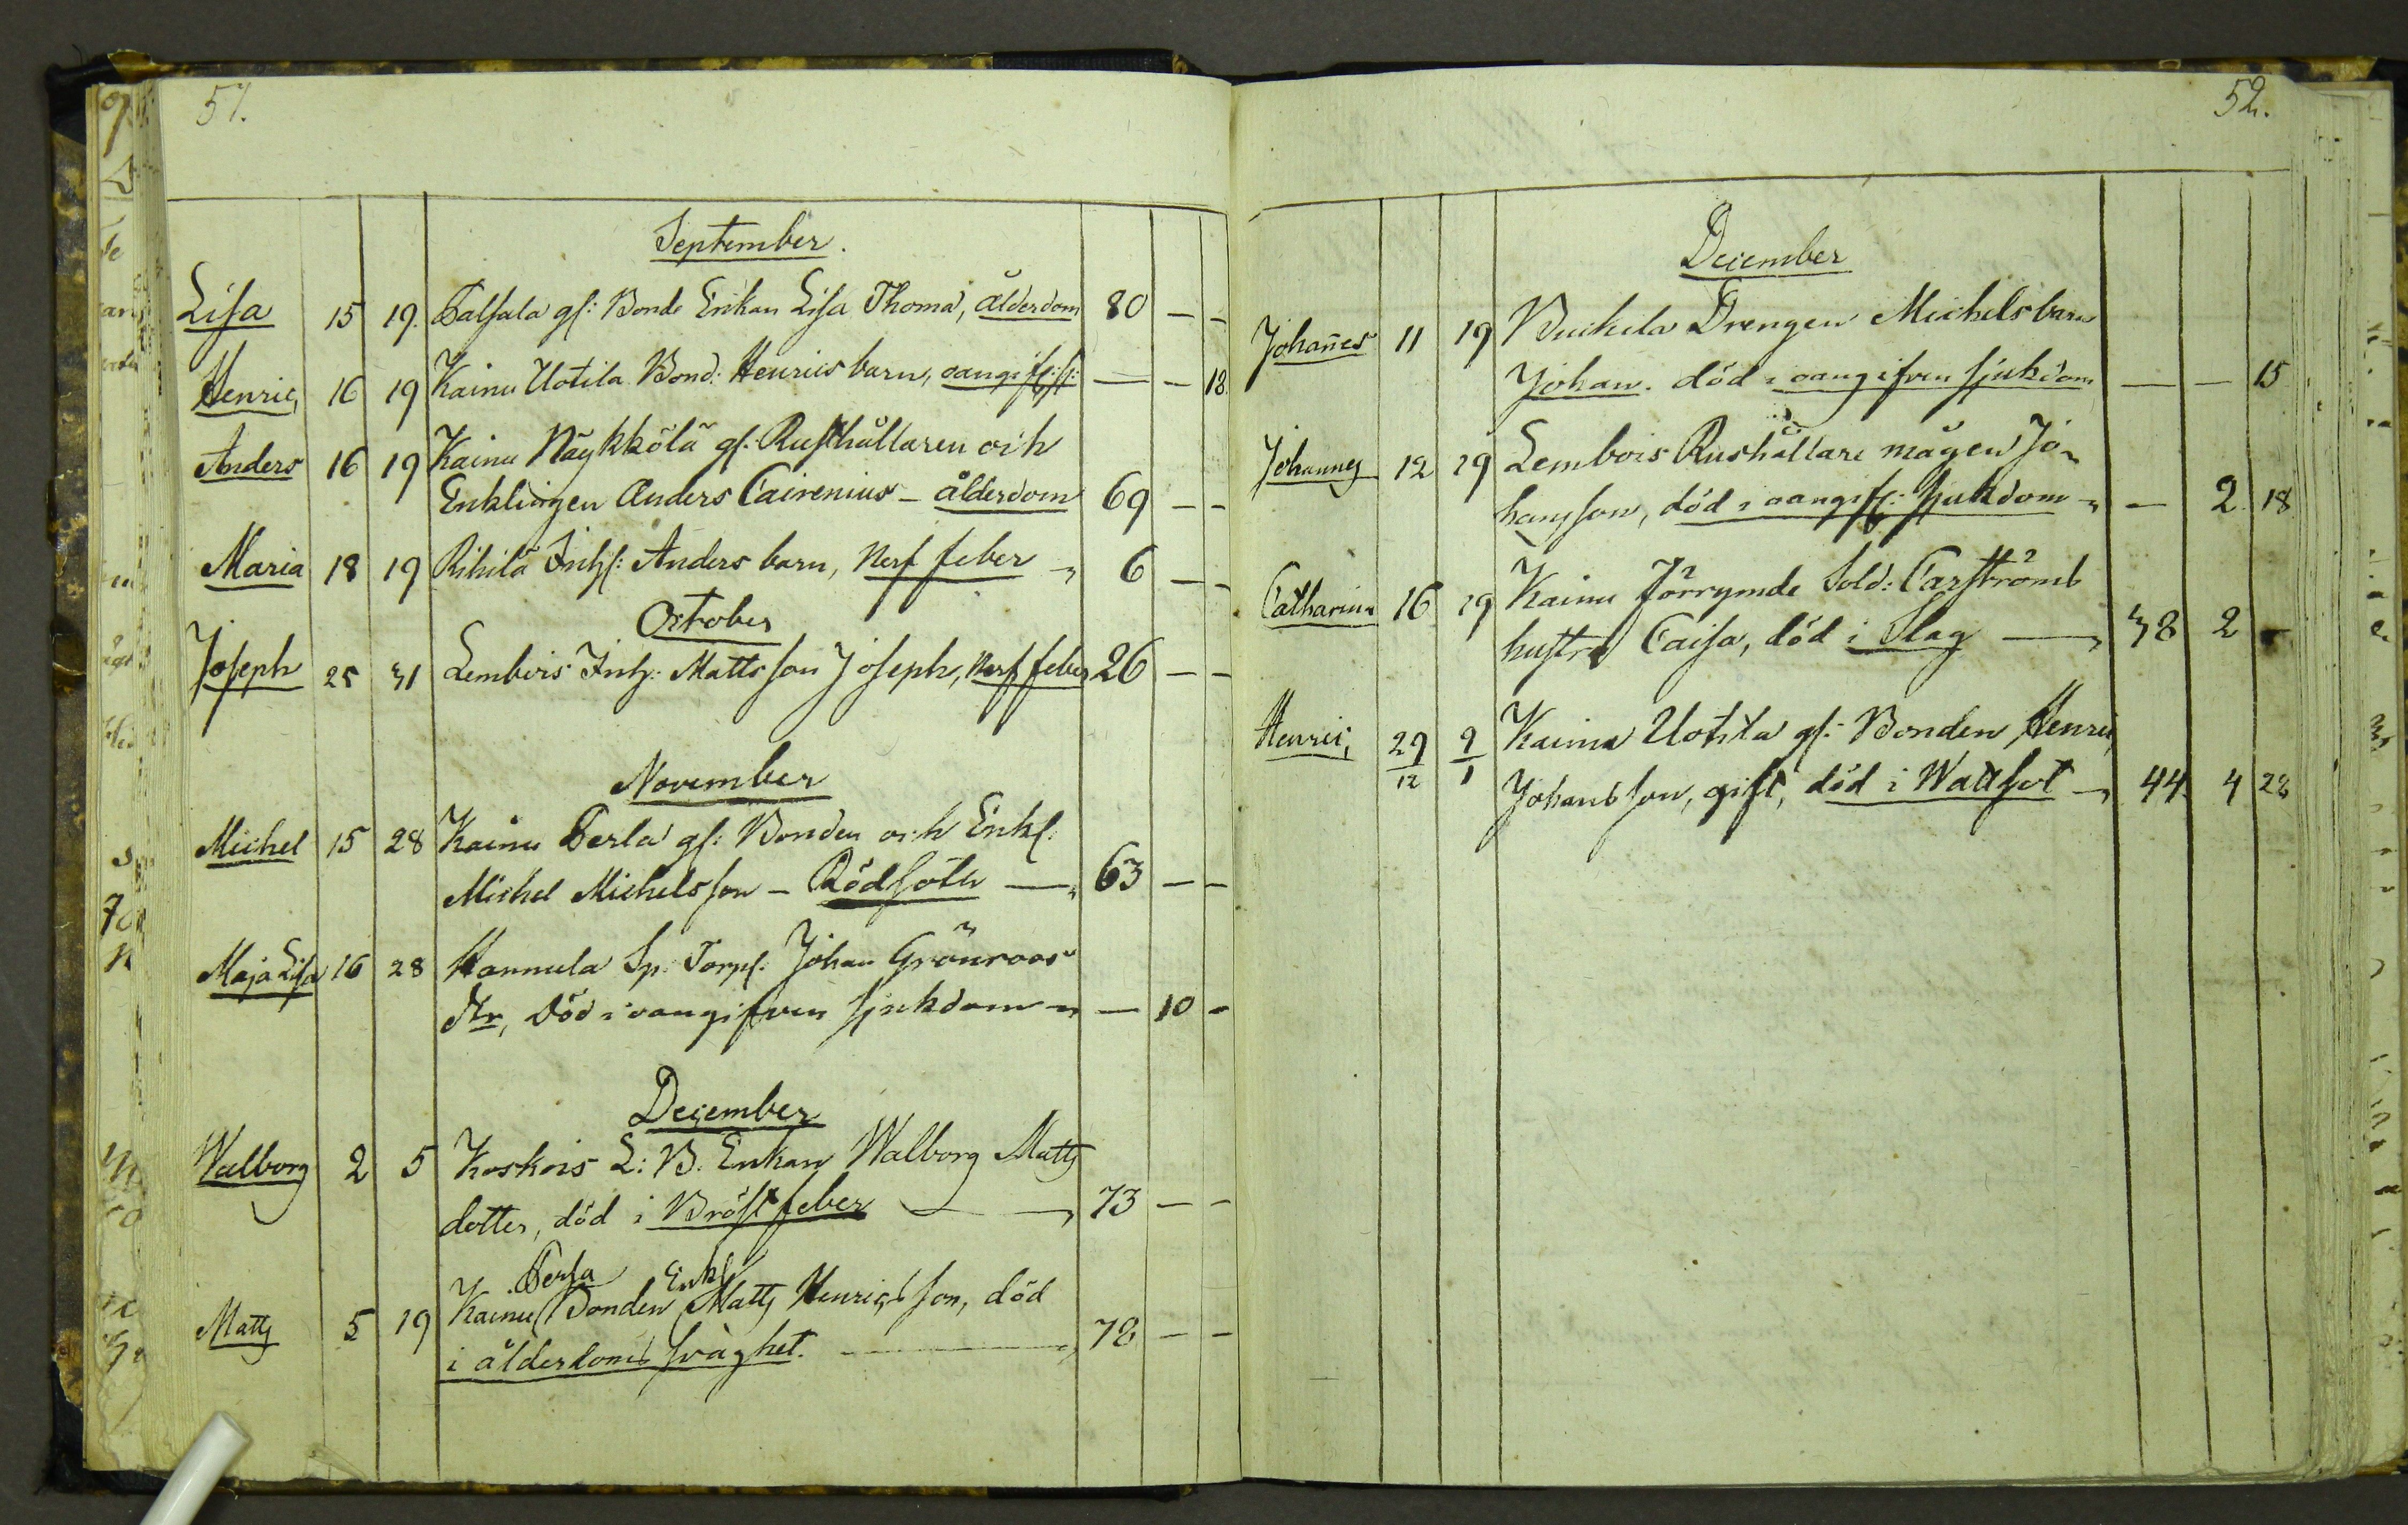 51.
September.
Lisa 15 19. Talsala gl: Bonde Enkan Lisa Thoma, ålderdom 80 — —
Henric 16 19 Kainu Uotila Bond: Henrics barn, oangif: s: — — 18.
Anders 16 19 Kainu Näykkölä gl. Rusthållaren och
Enklingen Anders Cairenius – ålderdom 69 — —
Maria 18 19 Rihilä Inhs: Anders barn, Nerf feber 6 — —
October
Joseph 25 31 Lembois Inh: Matts son Joseph, Nerf feber 26 — —
November
Michel 15 28 Kainu Perla gl: Bonden och Enkl:
Michel Michelsson – Rödsoth — 63 — —
Maja Lisa 16 28 Hannula Sp: Torpf: Johan Grönroos
dtr, död i oangifven sjukdom — 10 -
December
Walborg 2 5 Koskois L: B. Enkan Walborg Matts
dotter, död i Bröst feber — 73 — —
Persa Enkl
Matts 5 19 Kainu Bonden Matts Henricsson, död
i ålderdoms svaghet. — 78 — —
52.
December
Johañes 11 19 Drengen Michels barn
Johan. död i oangifven sjukdom — — 15
Johannes 12 19 Lembois Rushållare mågen Jo-
hansson, död i oangif: sjukdom — 2 18
Catharina 16 19 Kainu förrymde Sold: Carströms
hustru Caisa, död i Slag — 38 2 -
Henric 29/12 9/1 Kainu Uotila gl: Bonden Henric
Johansson, gift, död i Wattsot 44 4 28